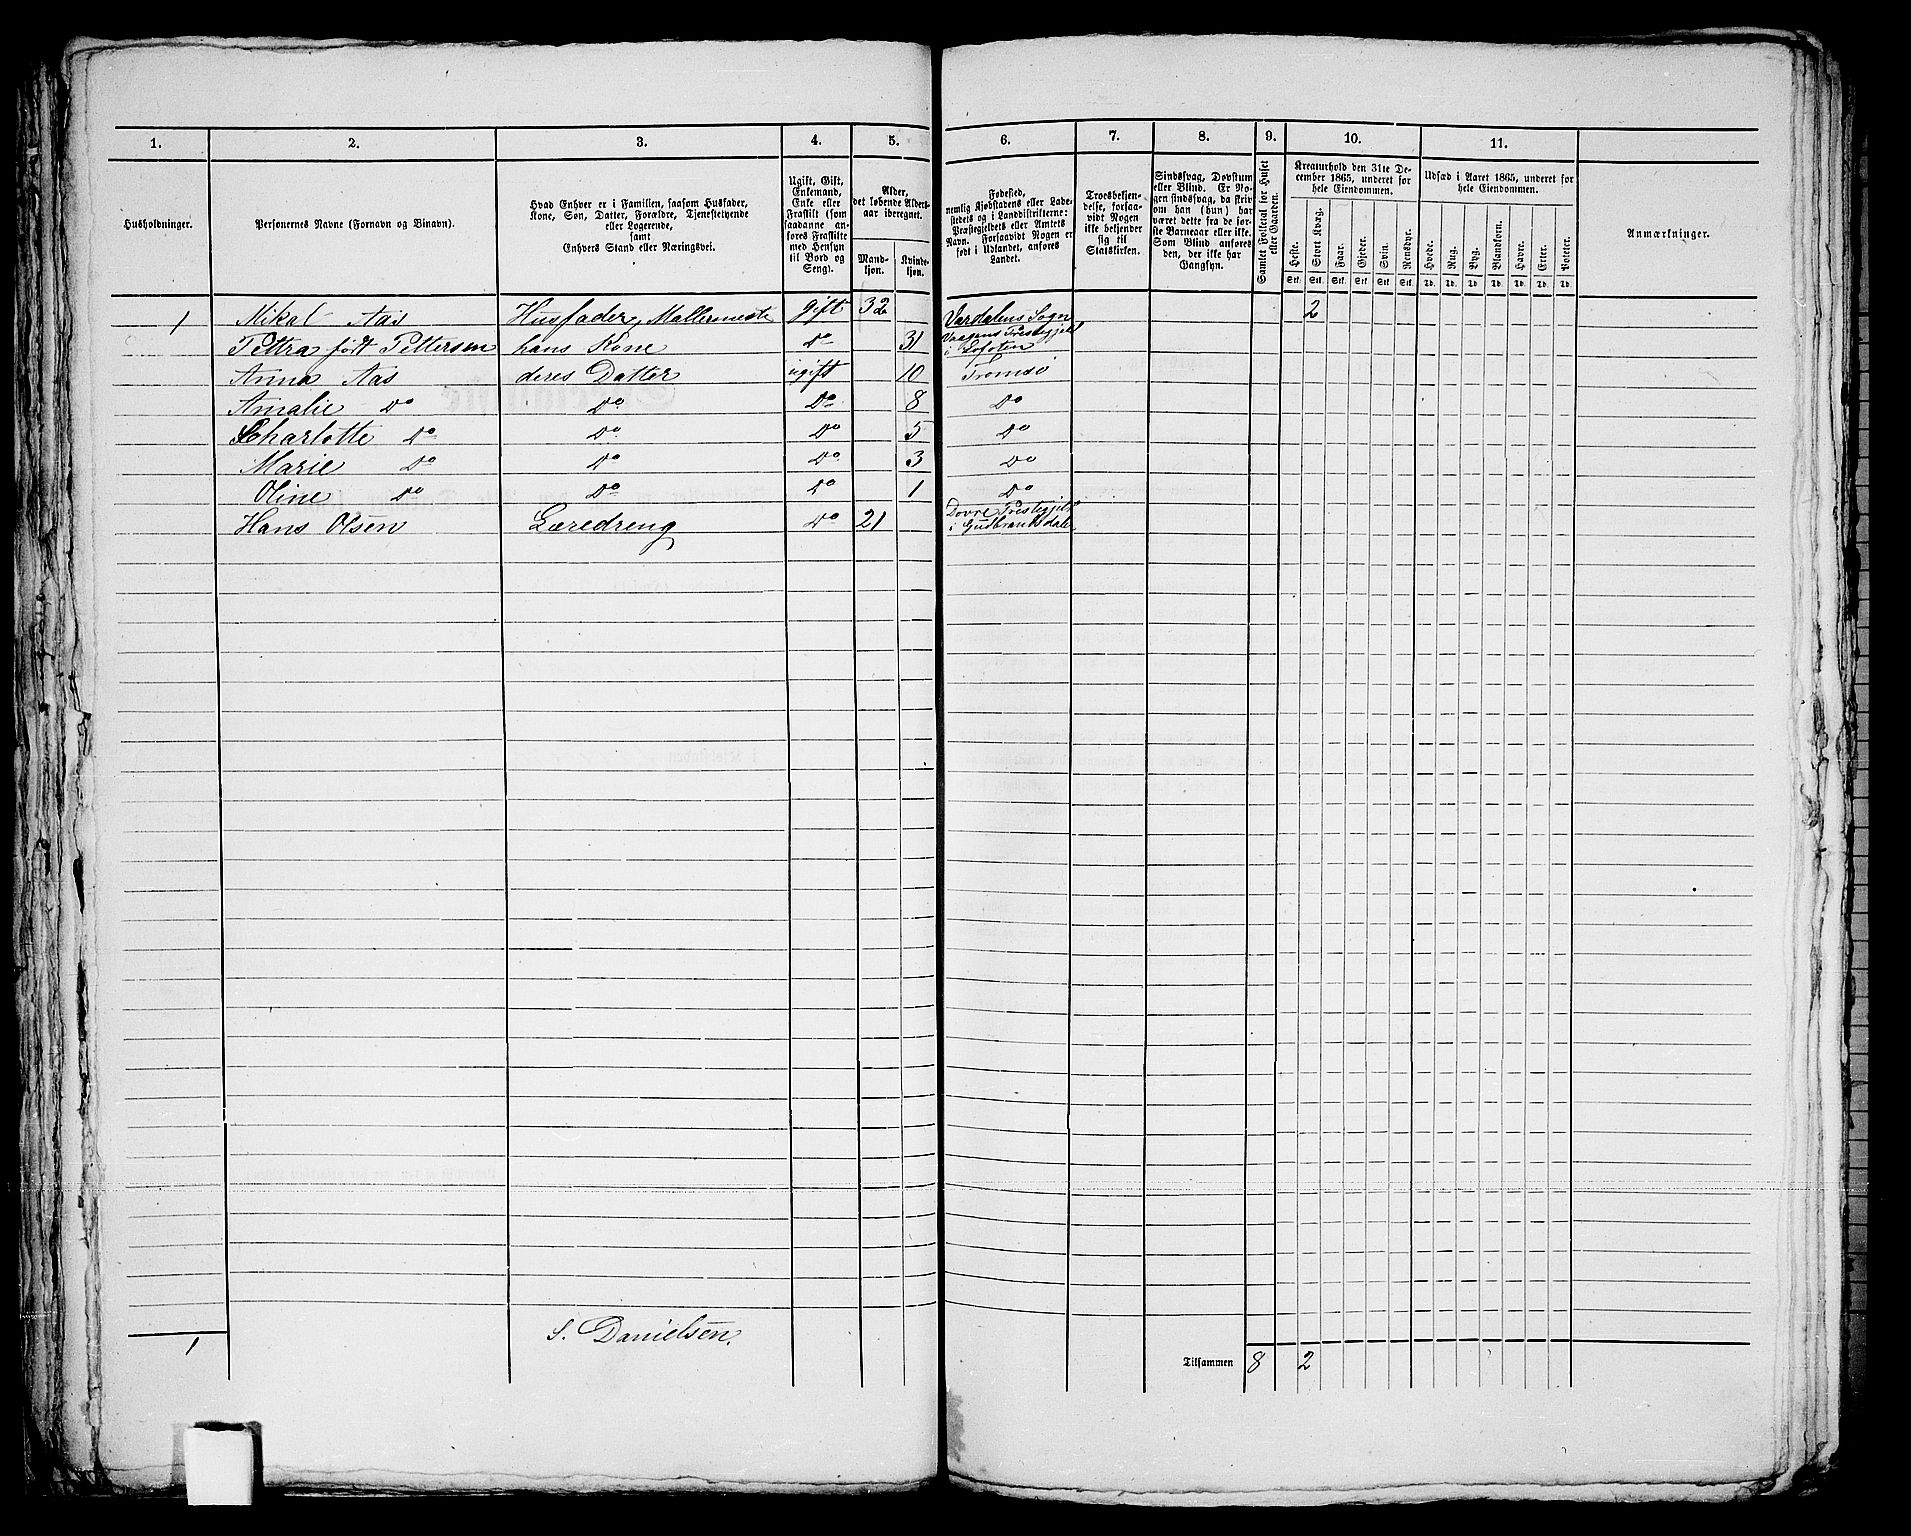 1. 2. 3. 4. 5. 6. 7. 8. 9. 10. 11.
Husholdninger.
Personernes Navne (Fornavn og Binavn).
Hvad Enhver er i Familien, saasom Husfader,
Kone, Søn, Datter, Forældre, Tjenestetyende
eller Logerende,
samt
Enhvers Stand eller Næringsvei.
Ugift, Gift,
Enkemand,
Enke eller
Fraskilt (som
saadanne an-
føres Fraskilte
med Hensyn
til Bord og
Seng).
Alder,
det løbende Alders-
aar iberegnet.
Mand-
kjøn.
Kvinde-
kjøn.
Fødested,
nemlig Kjøbstadens eller Lade-
stedets og i Landdistrikterne:
Præstegjeldets eller Amtets
Navn. Forsaavidt Nogen er
født i Udlandet, anføres
Landet.
Troesbekjen-
delse, forsaa-
vidt Nogen
ikke bekjender
sig til
Statskirken.
Sindssvag, Døvstum
eller Blind. Er No-
gen sindssvag, da skriv
om han (hun) har
været dette fra de før-
ste Barneaar eller ikke.
Som Blind anføres
den, der ikke har
Gangsyn.
Samlet Folketal for Huset
eller Gaarden.
Kreaturhold den 31te De-
cember 1865, underet for
hele Eiendommen.
Heste. Stort Kvæg. Faar. Gjeder. Svin. Rensdyr.
Stk. Stk. Stk. Stk. Stk. Stk.
Udsæd i Aaret 1865, underet for
hele Eiendommen.
Hvede. Rug. Byg. Blandkorn. Havre. Erter. Poteter.
Td. Td. Td. Td. Td. Td. Td.
Anmærkninger.
1 Mikal Aas Husfader, Mallermeste gift 32 Værdalens Sogn 2
Pettra født Pettersen hans Kone Do 31 Vaagens Prestegjeld
i Lofoten
Anna Aas deres Datter ugift 10 Tromsø
Amalie Do Do Do 8 Do
Scharlotte Do Do Do 5 Do
Marie Do Do Do 3 Do
Oline Do Do Do 1 Do
Hans Olsen Læredreng Do 21 Dovre Prestegjeld
i Gudbrandsdalen
S. Danielsen.
1
Tilsammen 8 2